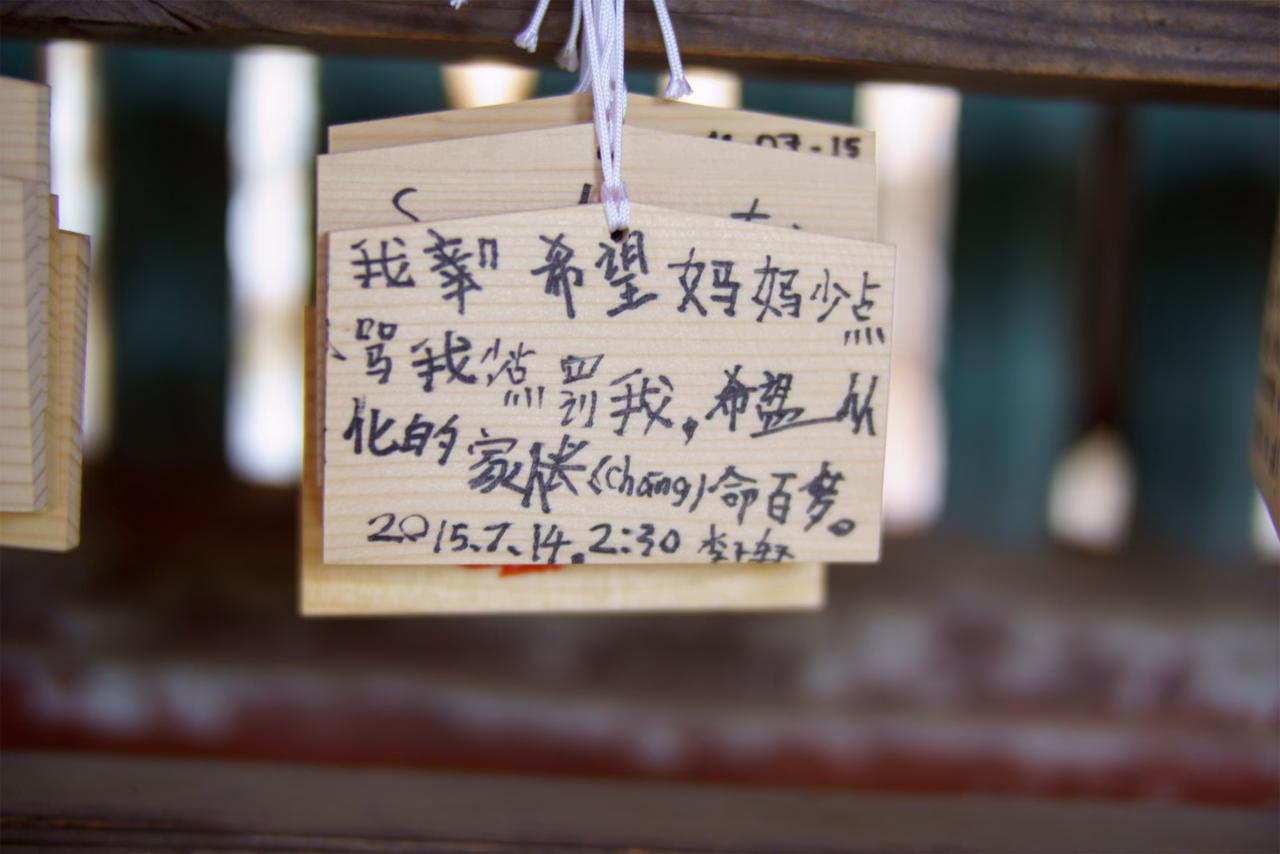 11-07-15
我 希望妈妈少点
骂我少点罚我,希望从
化的家长(chang)命百梦。
2015.7.14.2:30 李